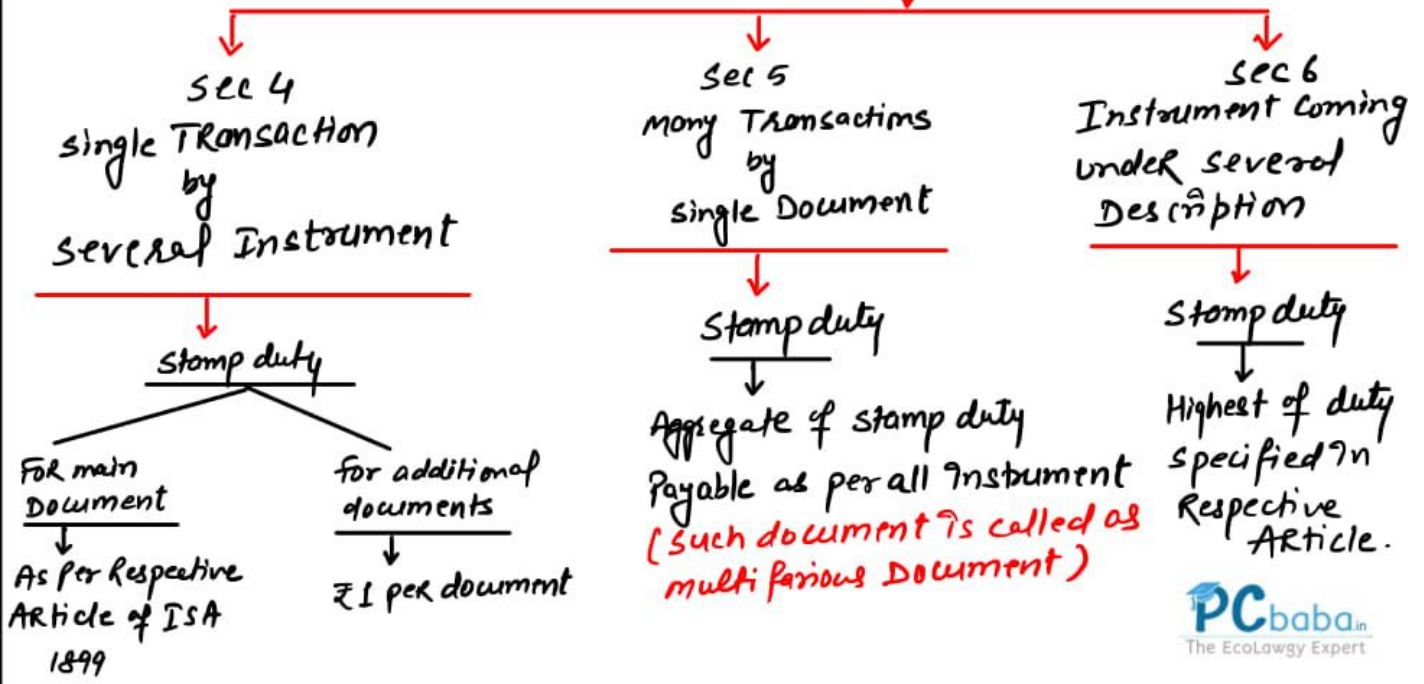 Sec 4
Single Transaction
by
Several Instrument
Stamp duty
For main
Document
As Per Respective
Article of ISA
1899
for additional
documents
₹1 per document
Sec 5
Many Transactions
by
Single Document
Stamp duty
Aggregate of stamp duty
Payable as per all Instrument
(Such document is called as
multi farious Document)
Sec 6
Instrument Coming
under several
Description
Stamp duty
Highest of duty
specified in
Respective
Article.
PCbaba.in
The EcoLawgy Expert